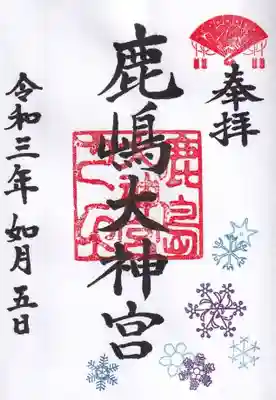 奉拝
鹿嶋大神宮
令和三年 如月 五日